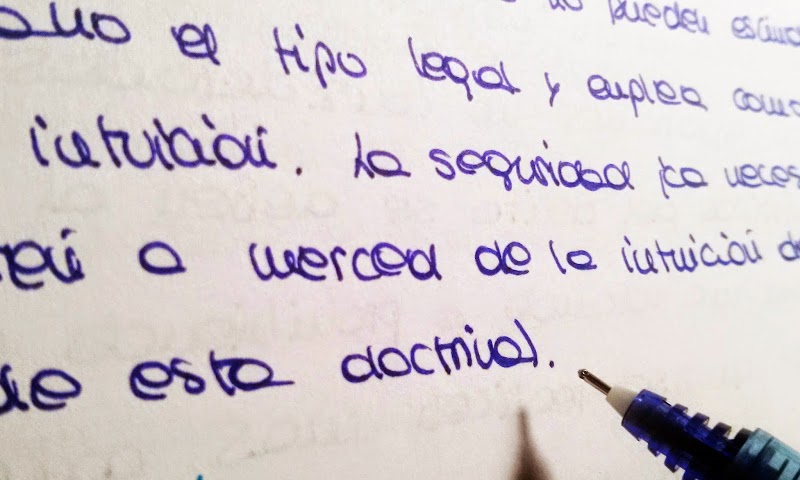 no pueden
el tipo legal y emplea como
intuición. La seguridad jca
a merced de la intuición de
esta doctrina).